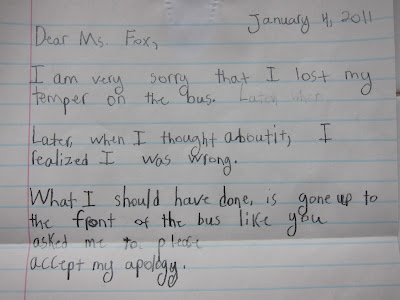 January 4, 2011
Dear Ms. Fox,
I am very sorry that I lost my
temper on the bus. Later, when
Later, when I thought aboutit, I
realized I was wrong.
What I should have done, is gone up to
the front of the bus like you
asked me to. please
accept my apology.